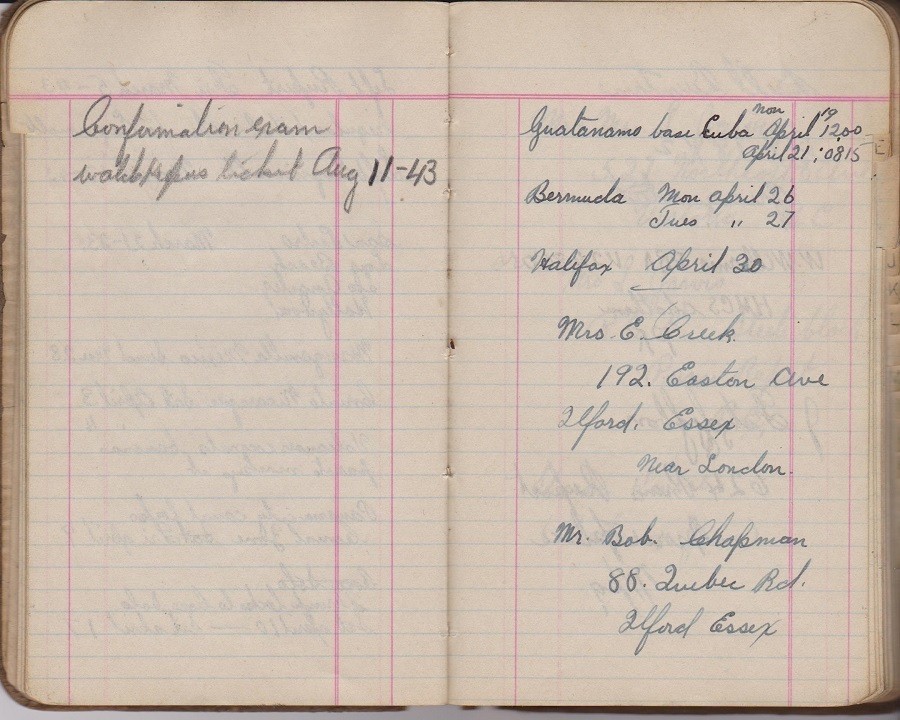 Confirmation exam
watchkpus ticket Aug 11-43
Guatanamo base Cuba Mon April 19 1200
April 21; 0815
Bermuda Mon April 26
Tues " 27
Halifax April 30
Mrs. E. Creek.
192. Easton Ave
Ilford. Essex
Near London.
Mr. Bob. Chapman
88. Quebec Rd.
Ilford Essex